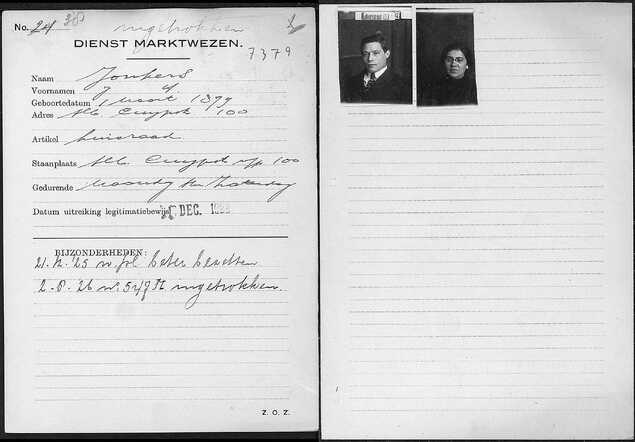 No. 24 38 ingetrokken
DIENST MARKTWEZEN.
7379
Naam Jonkers
Voornamen J
Geboortedatum 1 Maart 1899
Adres Alb. Cuypstr 100
Artikel huisraad
Staanplaats Alb. Cuypstr o/p 100
Gedurende Maandag t/m Zaterdag
Datum uitreiking legitimatiebewijs DEC.
BIJZONDERHEDEN:
21.12.25
2-8-26 no 547 ingetrokken.
Z. O. Z.